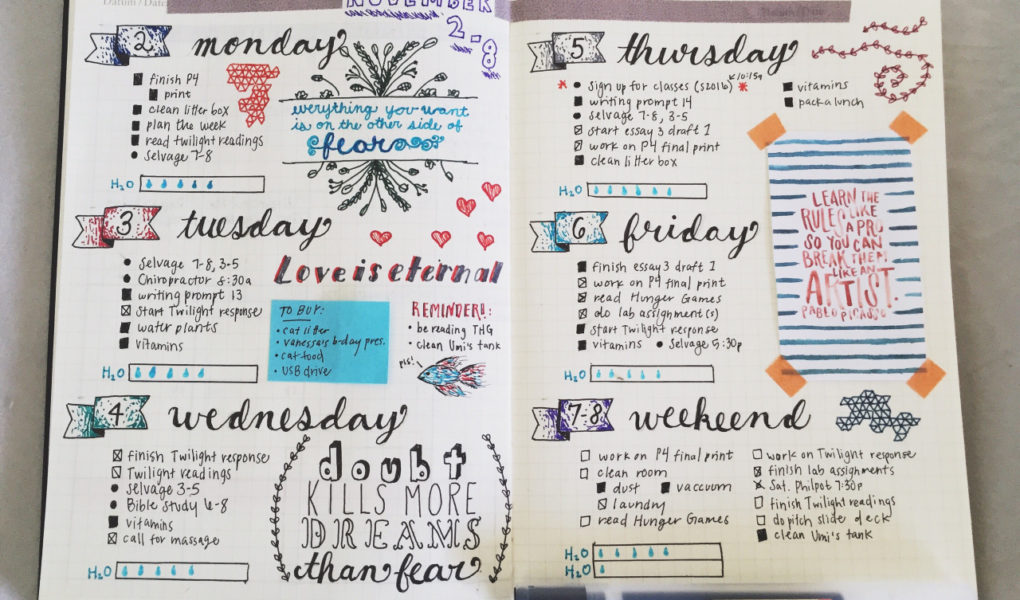 Datum / Date:
NOVEMBER
2-8
2 monday
finish P4
print
clean litter box
plan the week
read twilight readings
Selvage 7-8
H2O
everything you want
is on the other side of
fear
3 tuesday
Selvage 7-8, 3-5
Chiropractor 8:30a
writing prompt 13
start Twilight response
water plants
vitamins
H2O
Love is eternal
TO BUY:
cat litter
vanessa's b-day pres.
cat food
USB drive
REMINDER!:
be reading THG
clean Umi's tank
pls!
4 wednesday
finish Twilight response
Twilight readings
Selvage 3-5
Bible Study 6-8
vitamins
call for massage
H2O
doubt
KILLS MORE
DREAMS
than fear
5 thursday
Sign up for classes (S2016)
writing prompt 14
Selvage 7-8, 3-5
start essay 3 draft 1
work on P4 final print
clean litter box
vitamins
pack a lunch
H2O
LEARN THE
RULES LIKE
A PRO
SO YOU CAN
BREAK THEM
LIKE AN
ARTIST.
PABLO PICASSO
6 friday
finish essay 3 draft 1
work on P4 final print
read Hunger Games
do lab assignment(s)
start Twilight response
vitamins • Selvage 5:30p
H2O
7-8 weekeend
work on P4 final print
clean room
dust vaccuum
laundry
read Hunger Games
work on Twilight response
finish lab assignments
Sat. Philpot 7:30p
finish Twilight readings
do pitch slide deck
clean Umi's tank
H2O
H2O